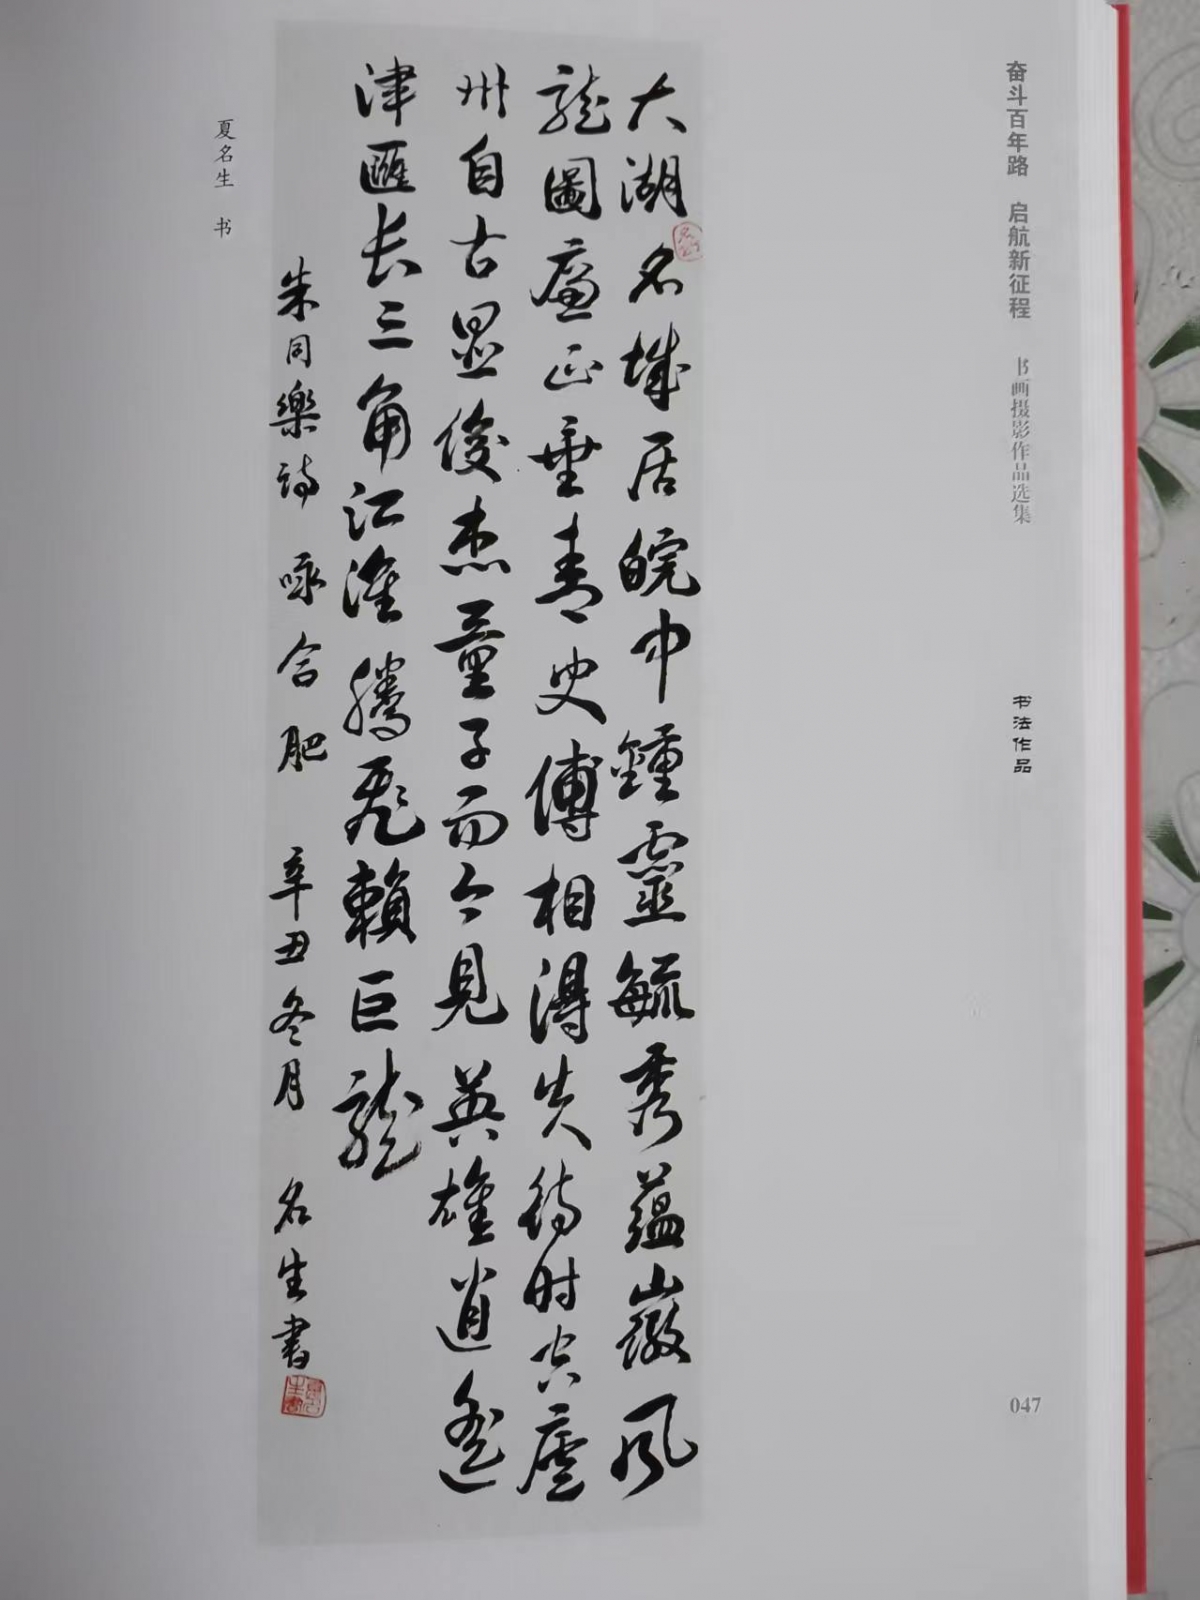 奋斗百年路 启航新征程 书画摄影作品选集 书法作品
047
大湖名城居皖中鍾靈毓秀蕴徽风
龙圖廉正垂青史傅相得失待时空廬
州自古显俊杰量子而今見英雄逍遥
津匯长三角江淮腾飞賴巨龙
朱同樂詩 咏合肥 辛丑冬月 名生書
夏名生 书